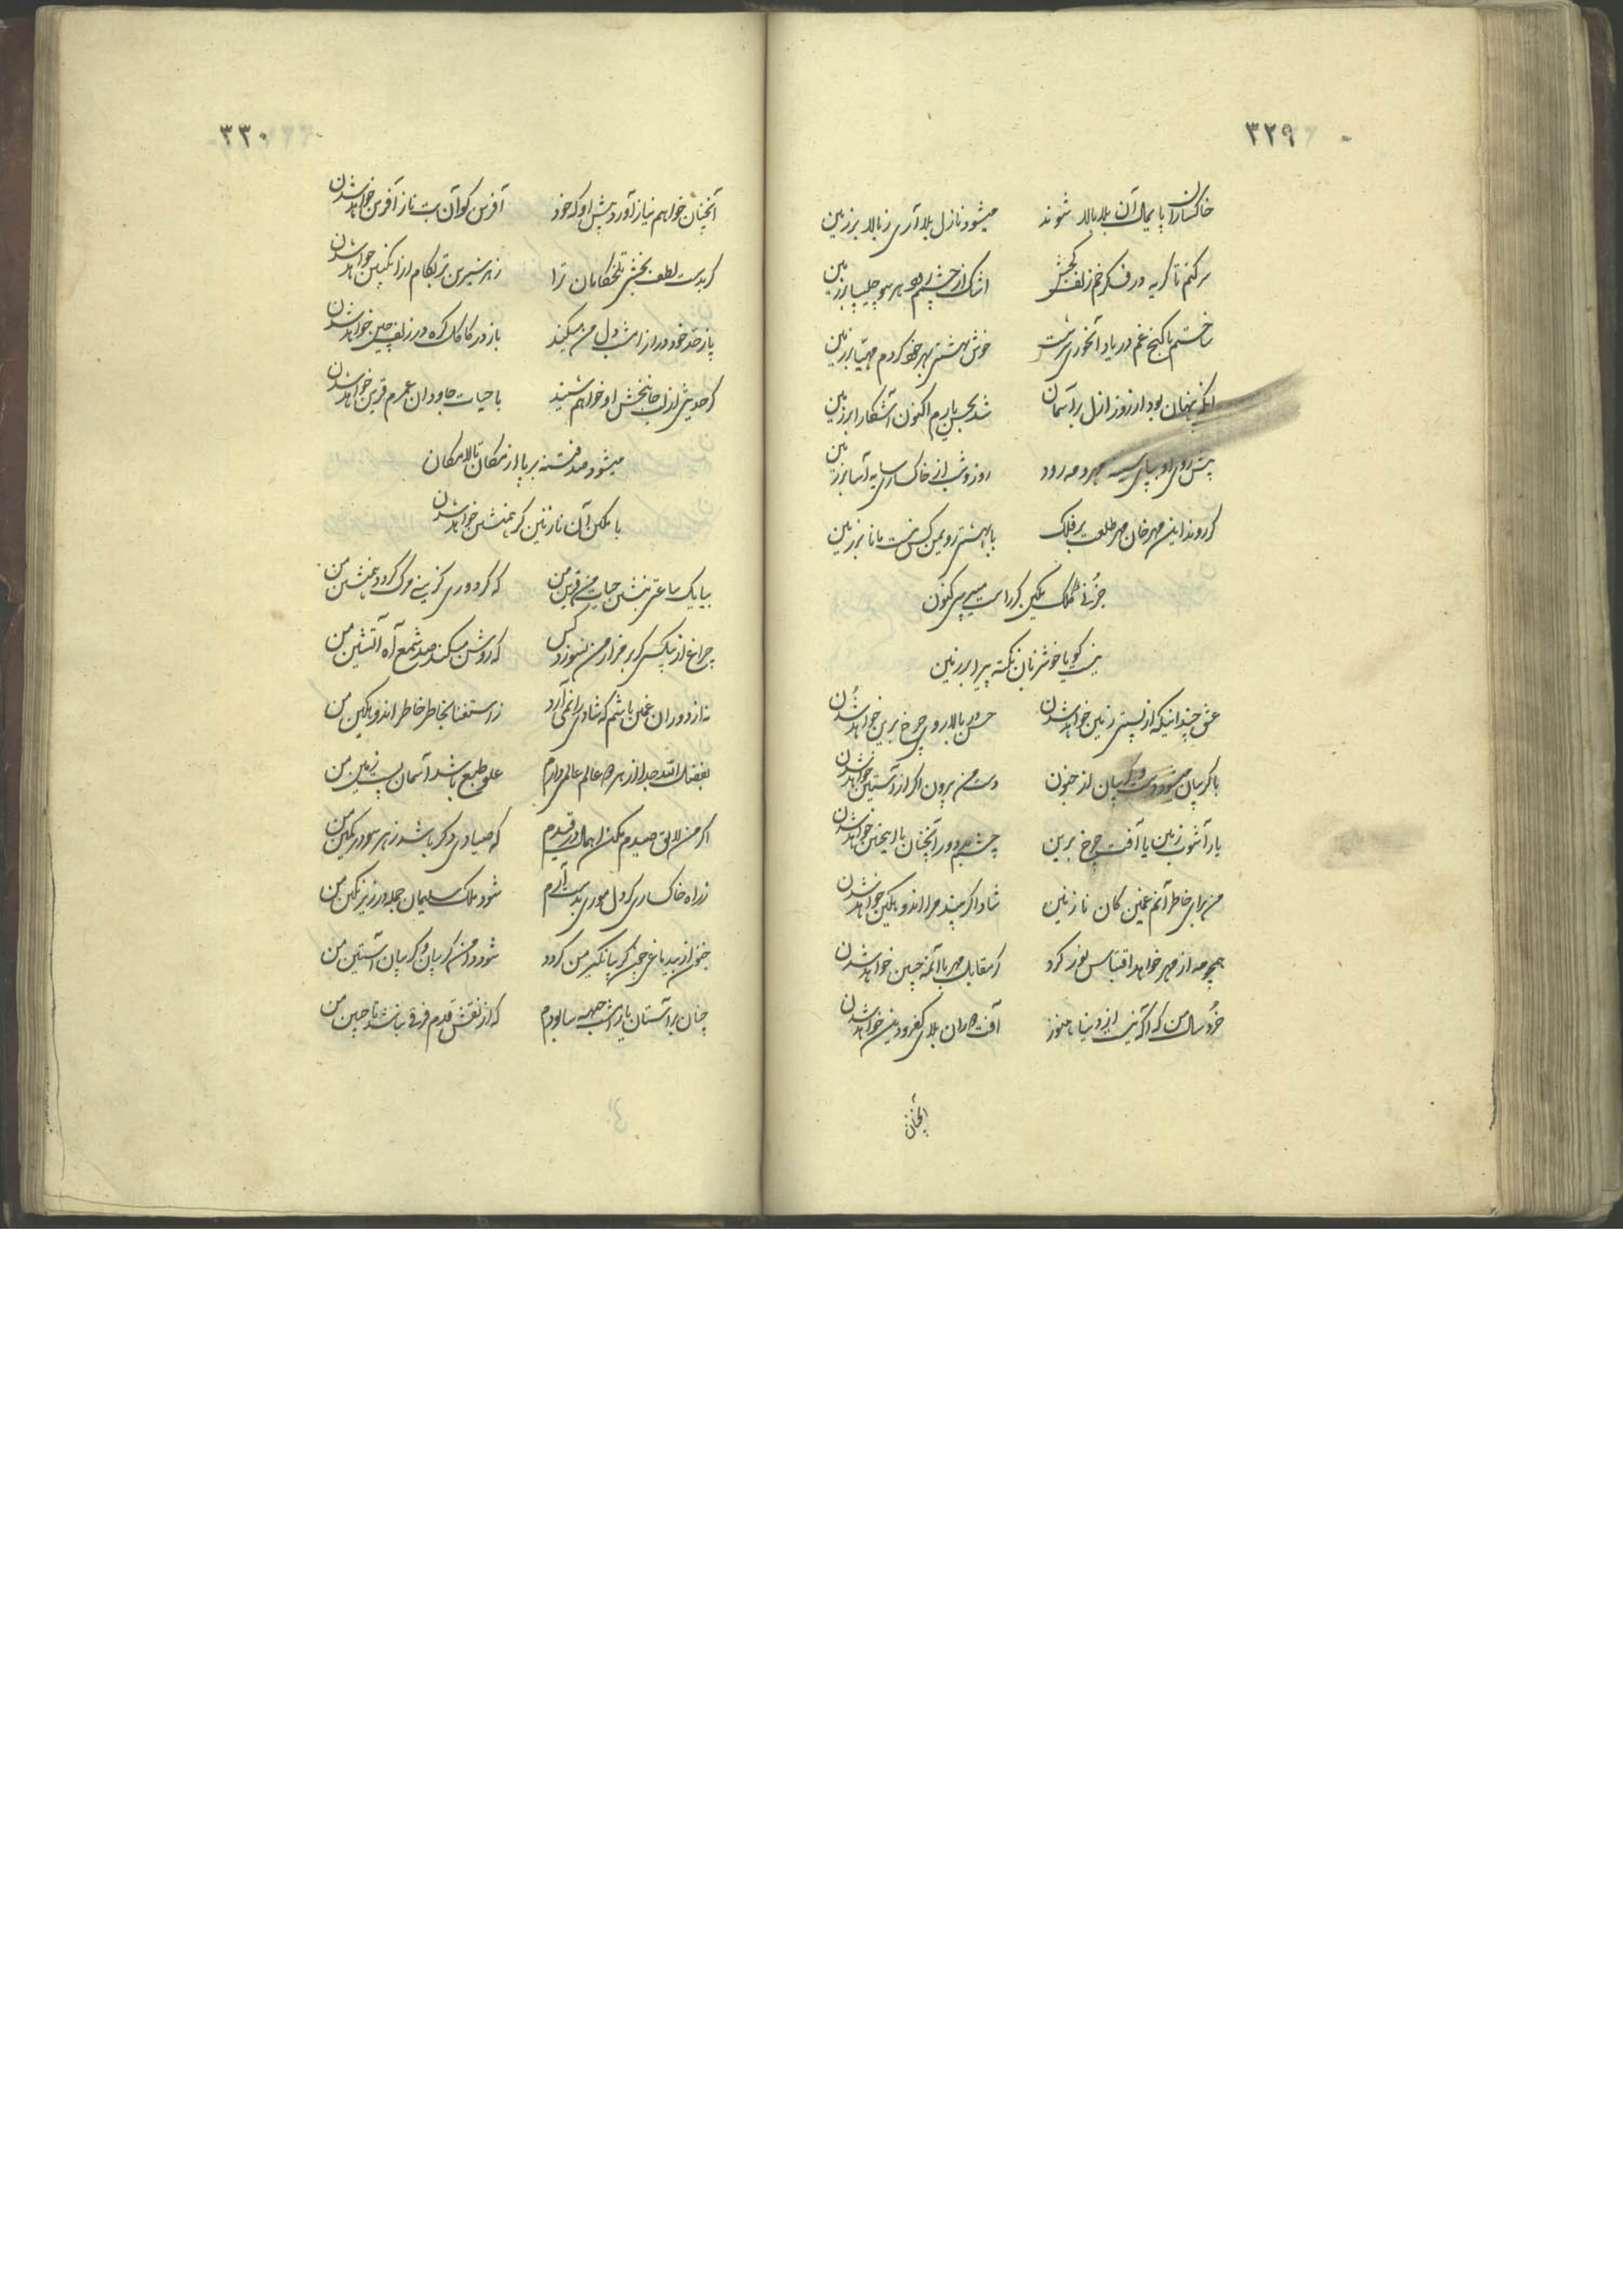 ۳۲۹
خاکساران پایمال آن بلا بالا شوند میشود نازل بلا آری ز بالا بر زمین
سر کنم تا گریه در فکر خم زلف کجش اشک از چشمم هر سو چلیپا بر زمین
ساختم با کنج غم در یاد آنحوری سرشت خوش بهشتی بهر خود کردم مهیا بر زمین
آنکه پنهان بود از روز ازل بر آسمان شد بحسن یارم اکنون آشکارا بر زمین
پیش روی او بپای مهر و مه رود روز و شب از خاکساری سایه آسا بر زمین
گر روند این مهرخان مهر طلعت بر فلک با بهشتی رو بمن کس نیست مانا بر زمین
جز نی کلک تمکین گر راست میپرسی کنون
نیست گویا خوش زبان نکته پیرا بر زمین
عشق چندانیکه از پستی زمین خواهد شدن حسن در بالا روی چرخ برین خواهد شدن
با گریبان میشود دست و گریبان از جنون دست من بیرون اگر از آستین خواهد شدن
یار آشوب زمین یا آفت چرخ برین چشم بد دور آنچنان یا اینچنین خواهد شدن
من برای خاطر آنم غمین کان نازنین شاد اگر بیند مرا اندوهگین خواهد شدن
همچو مه از مهر خواهد اقتباس نور کرد گر مقابل مهر با آنمه جبین خواهد شدن
خرد سال من که آگه نیست از دنیا هنوز آفت دوران بلای کفر و دین خواهد شدن
آنچنان
۳۳۰
آنچنان خواهم نیاز آورد پیش او که خود آفرین گو آن بت ناز آفرین خواهد شدن
گر بدست لطف بخشی تلخکامان ترا زهر شیرین تر بکام از انگبین خواهد شدن
باز خد خود دراز امشب دل من میکند باز در کاکل گره در زلف چین خواهد شدن
گر حدیثی از لب جانبخش او خواهم شنید با حیات جاودان عمرم قرین خواهد شدن
میشود صد فتنه برپا از مکان تا لامکان
با مکین آن نازنین گر همنشین خواهد شدن
بیا یک ساعتی بنشین حیات من قرین من که گر دوری گزینی مرگ گردد همنشین من
چراغ از بیکسی گر بر مزار من نسوزد کس که روشن میکند صد شمع آه آتشین من
نه از دوران غمین باشم که شادی را نمی آرد ز استغنا بخاطر خاطر اندوهگین من
بفضل الله جدا از هر دو عالم عالمی دارم علو طبع باشد آسمان پست زمین من
اگر من لایق صیدم مکن اهمال در قیدم که صیادی دگر باشد ز هر سو در کمین من
ز راه خاکساری گر دل موری بدست آرم شود ملک سلیمان جمله در زیر نگین من
جنون از بید باغی چون گریبانگیر من گردد شود دامن گریبان و گریبان آستین من
چنان بر آستان یار امشب جبهه سا بودم که از نقش قدم فرقی نباشد تا جبین من